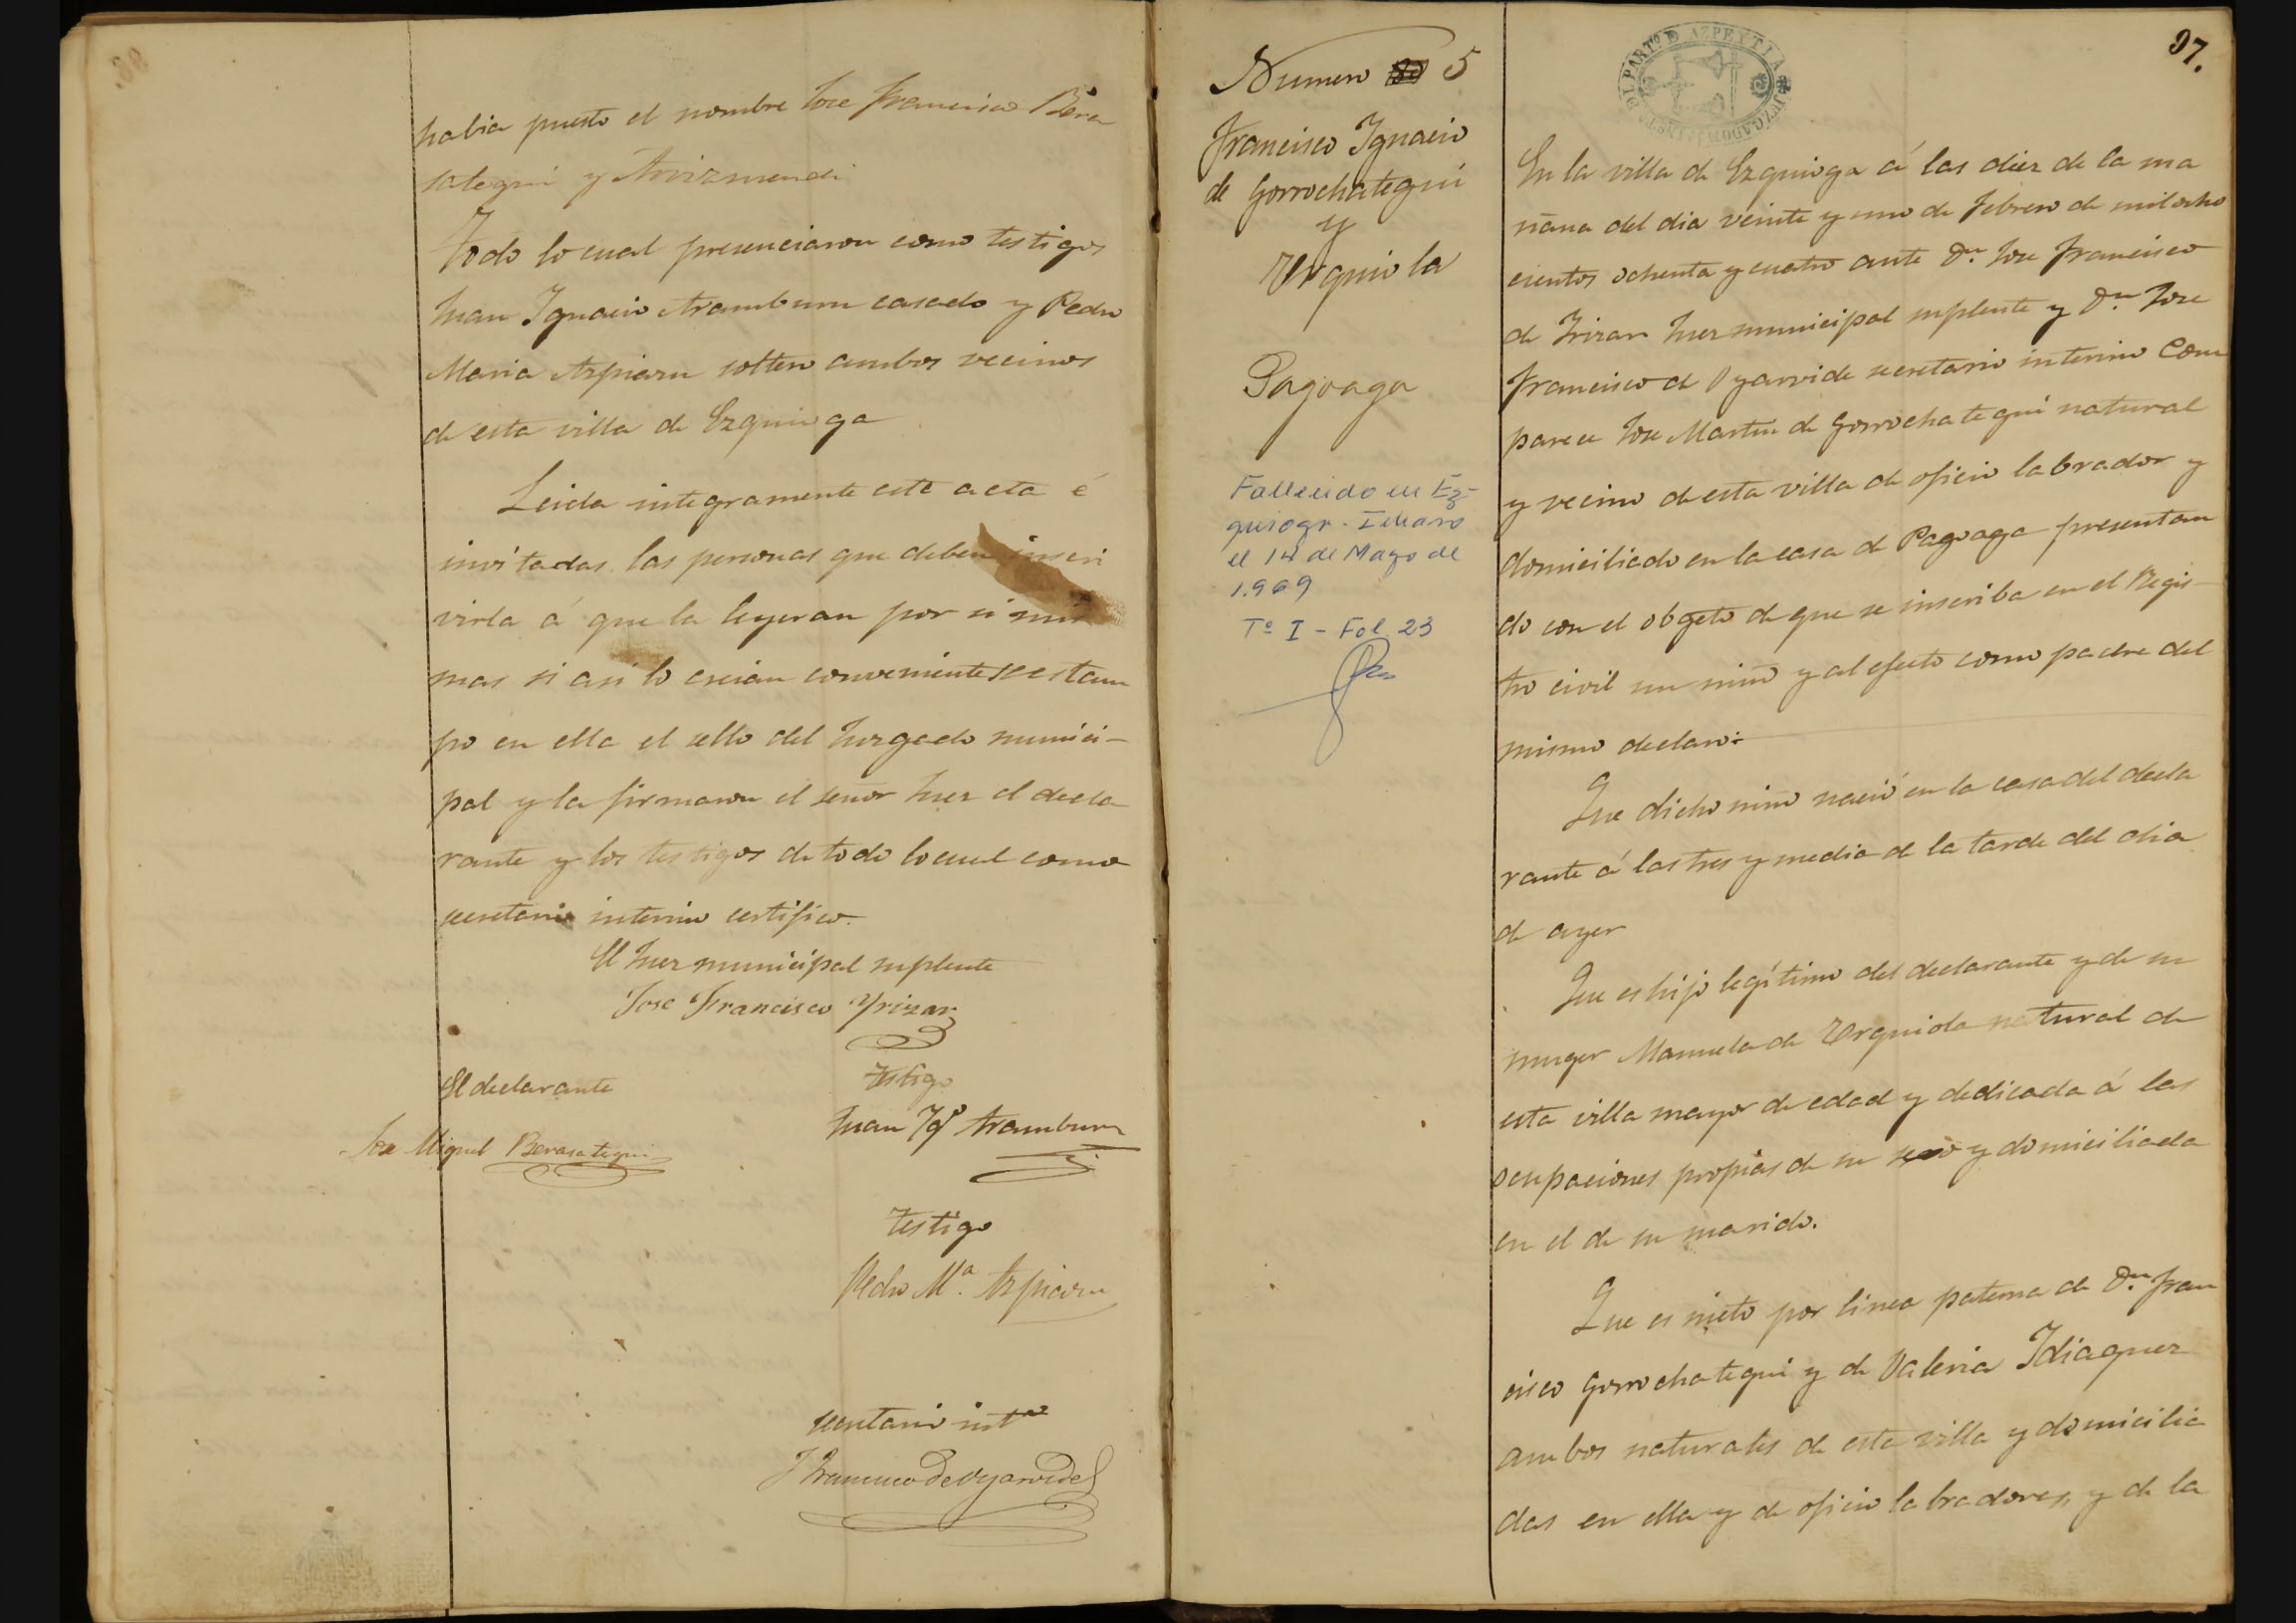 habia puesto el nombre Jose Francisco Bera
sategui y Arizmendi
Todo lo cual presenciaron como testigos
Juan Ignacio Aramburu casado y Pedro
Maria Azpiazu soltero ambos vecinos
de esta villa de Ezquioga
Leida integramente este acta é
invitadas las personas que deben suscri
virla á que la leyeran por si mis
mas si asi lo creian conveniente se estam
po en ella el sello del Juzgado munici-
pal y la firmaron el señor Juez el decla
rante y los testigos de todo lo cual como
secretario interino certifico.
El Juez municipal suplente
Jose Francisco Yrizar
El declarante
Jose Miguel Berasategui
Testigo
Juan Ygº Aramburu
Testigo
Pedro Mª. Azpiazu
secretario intº
J Francisco de Oyarvide
Numero 5
Francisco Ignacio
de Gorrochategui
y
Urquiola
Pagoaga
Fallecido en Ez-
quioga-Ichaso
el 14 de Mayo de
1.969
Tº I - Fol. 23
97.
PARTº. D AZPEYTIA
JUZGADO MUNICIPAL
En la villa de Ezquioga á las diez de la ma
ñana del dia veinte y uno de Febrero de mil ocho
cientos ochenta y cuatro ante Dn. Jose Francisco
de Irizar Juez municipal suplente y Dn Jose
Francisco de Oyarvide secretario interino Com
parece Jose Martin de Gorrochategui natural
y vecino de esta villa de oficio labrador y
domiciliado en la casa de Pagoaga presentan
do con el obgeto de que se inscriba en el Regis-
tro civil un niño y al efecto como padre del
mismo declaro:
Que dicho niño nació en la casa del decla
rante á las tres y media de la tarde del dia
de ayer
Que es hijo legítimo del declarante y de su
muger Manuela de Urquiola natural de
esta villa mayor de edad y dedicada á las
ocupaciones propias de su sexo y domiciliada
en el de su marido.
Que es nieto por linea paterna de Dn. Fran
cisco Gorrochategui y de Valeria Idiaquez
ambos naturales de esta villa y domicilia
das en ella y de oficio labradores, y de la